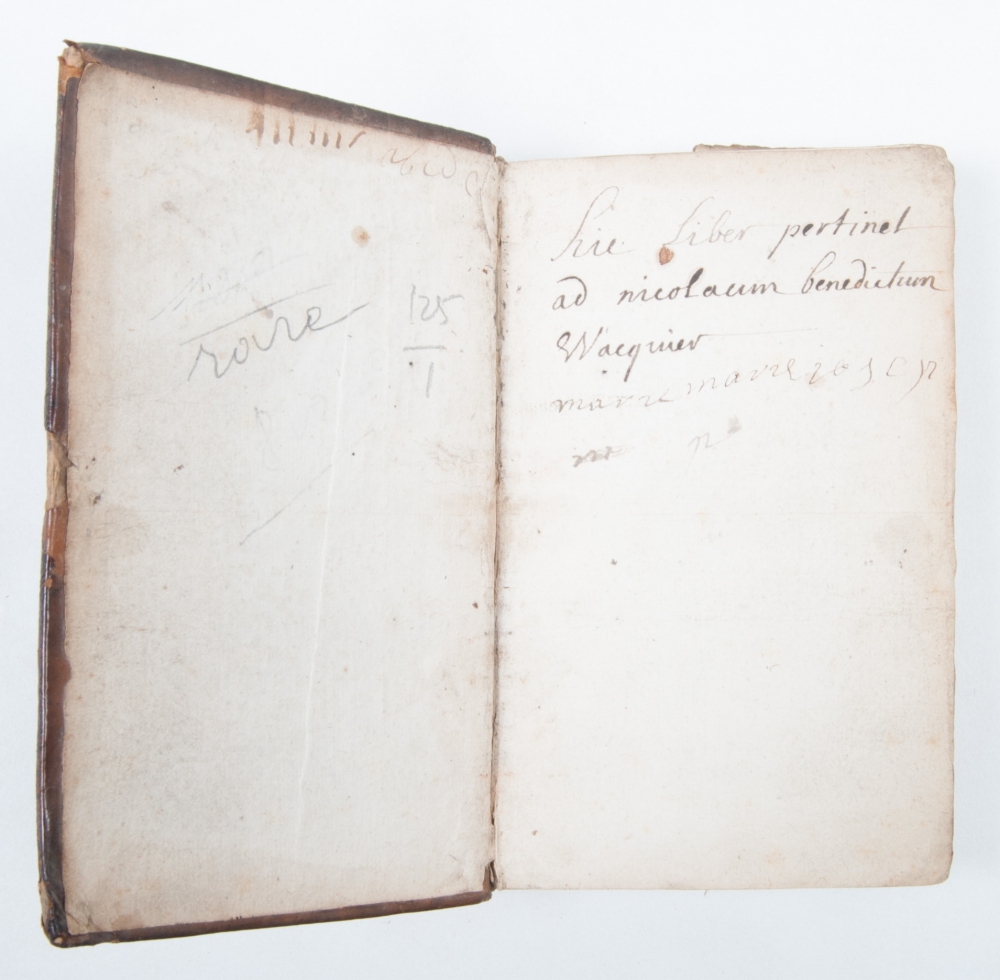 rare
125
1
hic Liber pertinet
ad nicolaum benedictum
Wacquier
marie marie josep
m n